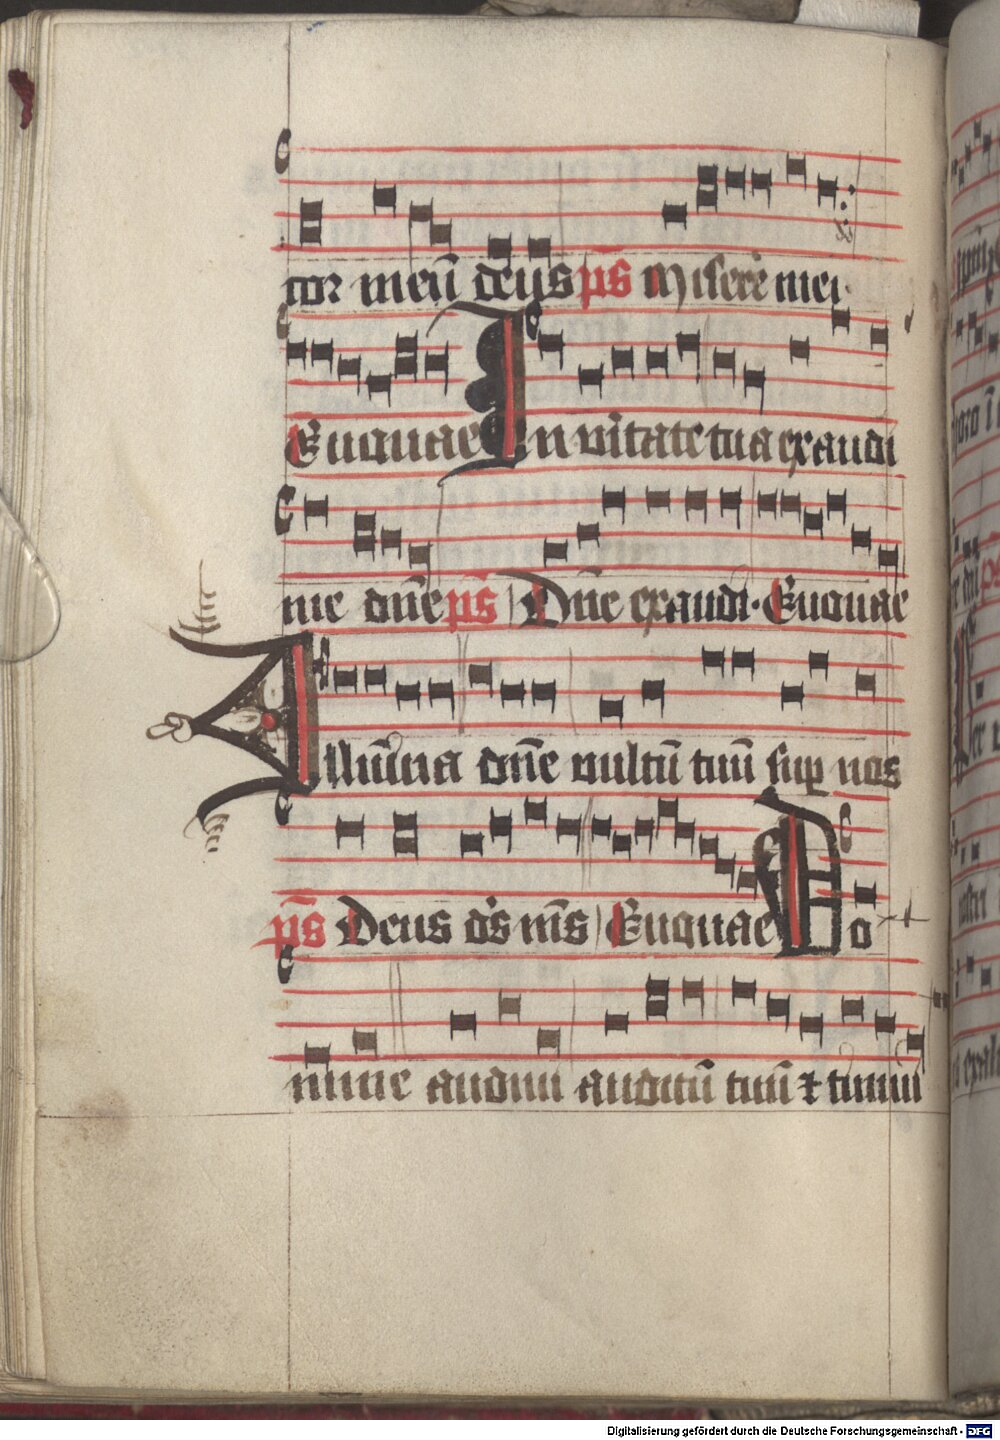 tor meū deus ps̄ Miserere mei
Euouae In v̄itate tua exaudi
me dn̄e ps̄ Dn̄e exaudi · Euouae
Illumina dn̄e vultū tuū sup nos
ps̄ Deus ds̄ ms̄ Euouae Do
mine audiui auditū tuū ⁊ timui
Digitalisierung gefördert durch die Deutsche Forschungsgemeinschaft - DFG